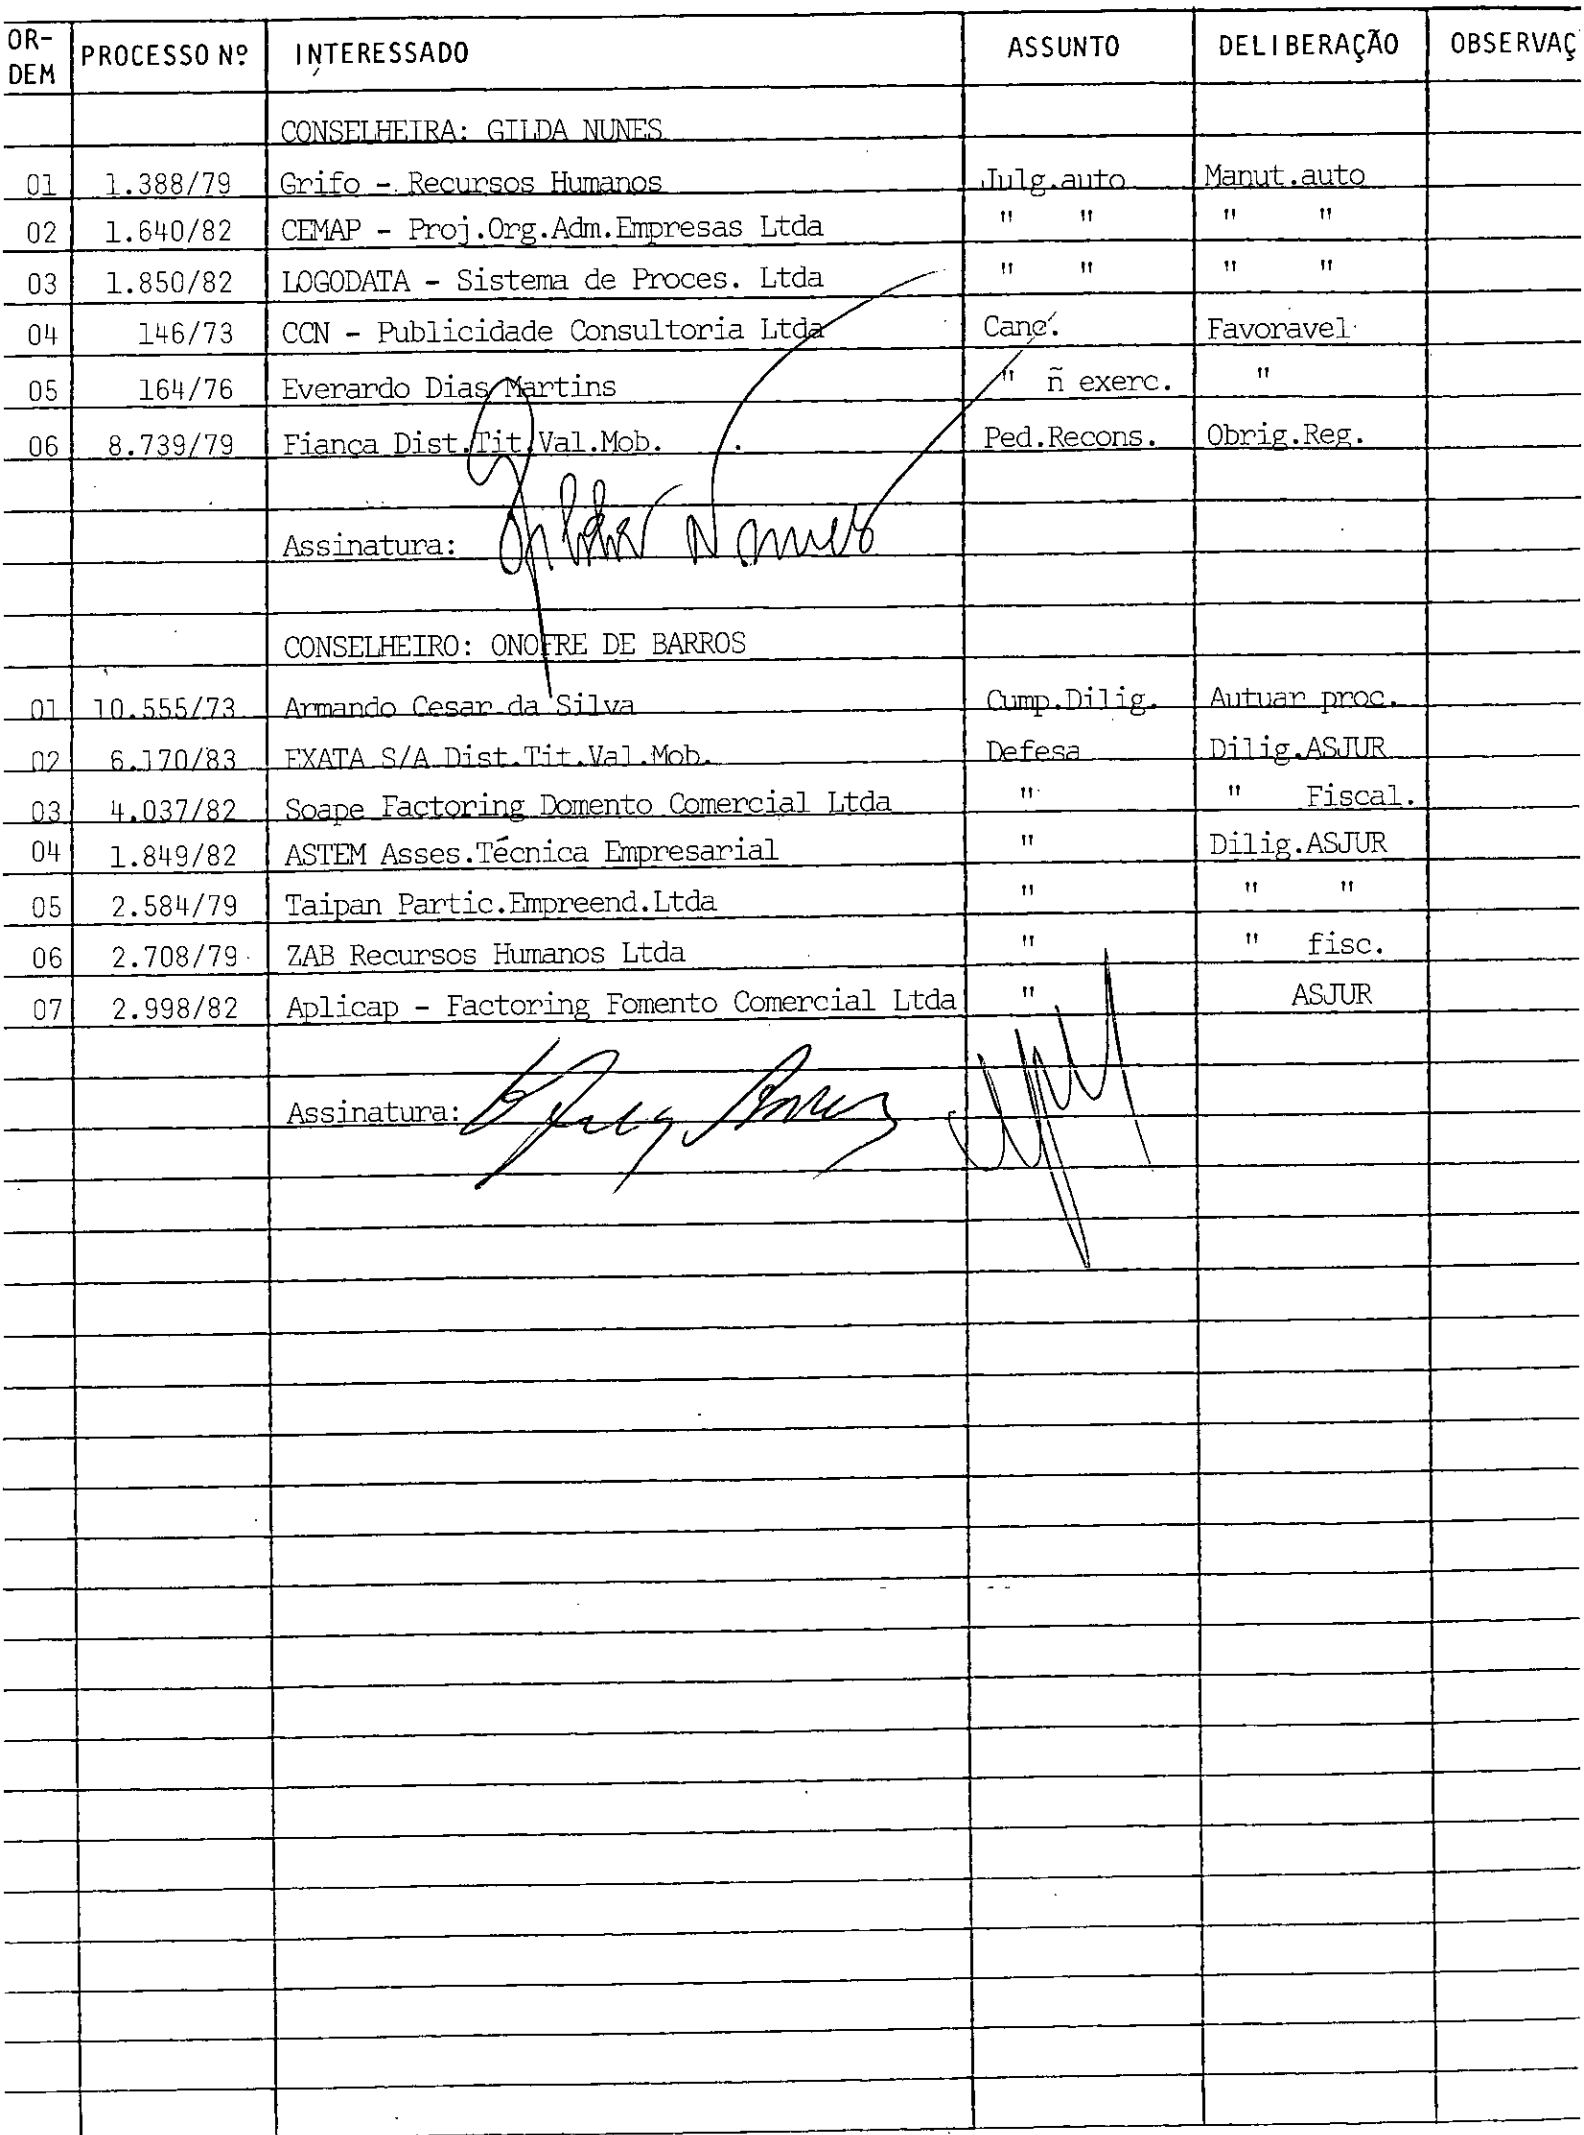 OR-DEM PROCESSO Nº INTERESSADO ASSUNTO DELIBERAÇÃO OBSERVAÇ
CONSELHEIRA: GILDA NUNES
01 1.388/79 Grifo - Recursos Humanos Julg.auto Manut.auto
02 1.640/82 CEMAP - Proj.Org.Adm.Empresas Ltda " " " "
03 1.850/82 LOGODATA - Sistema de Proces. Ltda " " " "
04 146/73 CCN - Publicidade Consultoria Ltda Canc. Favoravel
05 164/76 Everardo Dias Martins " ñ exerc. "
06 8.739/79 Fiança Dist.Tit.Val.Mob. Ped.Recons. Obrig.Reg.
Assinatura: Gilda Nunes
CONSELHEIRO: ONOFRE DE BARROS
01 10.555/73 Armando Cesar da Silva Cump.Dilig. Autuar proc.
02 6.170/83 EXATA S/A Dist.Tit.Val.Mob. Defesa Dilig.ASJUR
03 4.037/82 Soape Factoring Domento Comercial Ltda " " Fiscal.
04 1.849/82 ASTEM Asses.Técnica Empresarial " Dilig.ASJUR
05 2.584/79 Taipan Partic.Empreend.Ltda " " "
06 2.708/79 ZAB Recursos Humanos Ltda " " fisc.
07 2.998/82 Aplicap - Factoring Fomento Comercial Ltda " ASJUR
Assinatura: